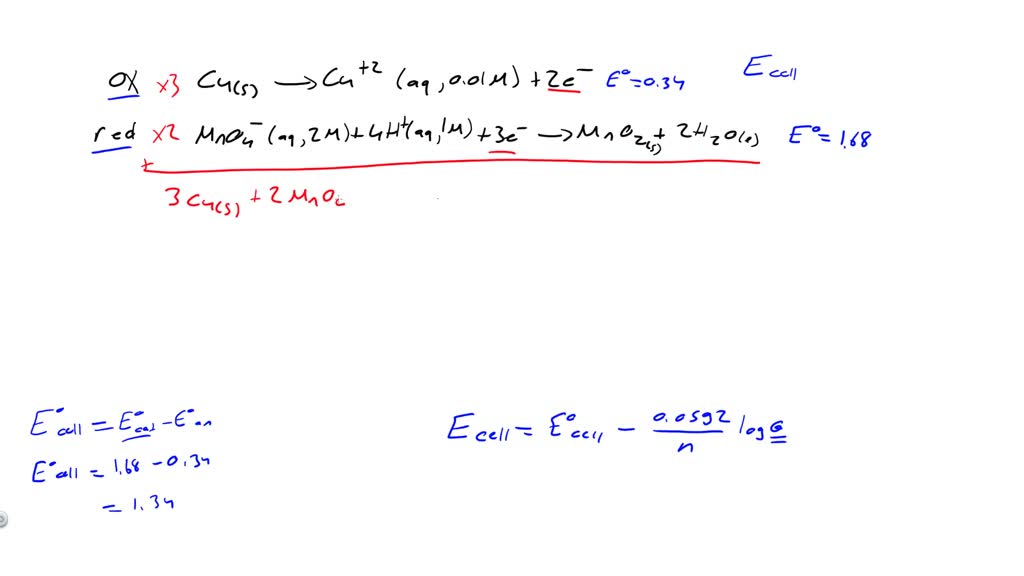 OX ×3 Cu(s) ⟶ Cu⁺² (aq, 0.01M) + 2e⁻ E° = 0.34 Ecell
red ×2 MnO₄⁻ (aq, 2M) + 4H⁺(aq, 1M) + 3e⁻ ⟶ MnO₂(s) + 2H₂O(l) E° = 1.68
+
3Cu(s) + 2MnO
E°cell = E°cat - E°an
E°cell = 1.68 - 0.34
= 1.34
Ecell = E°cell - 0.0592/n log Q